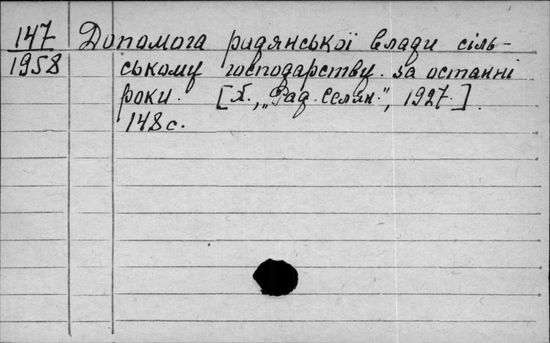 147 Допомога радянської влади сіль-
1958 ському господарству за останні
роки. [Х., „Рад. Селян.", 1927.]
148 с.